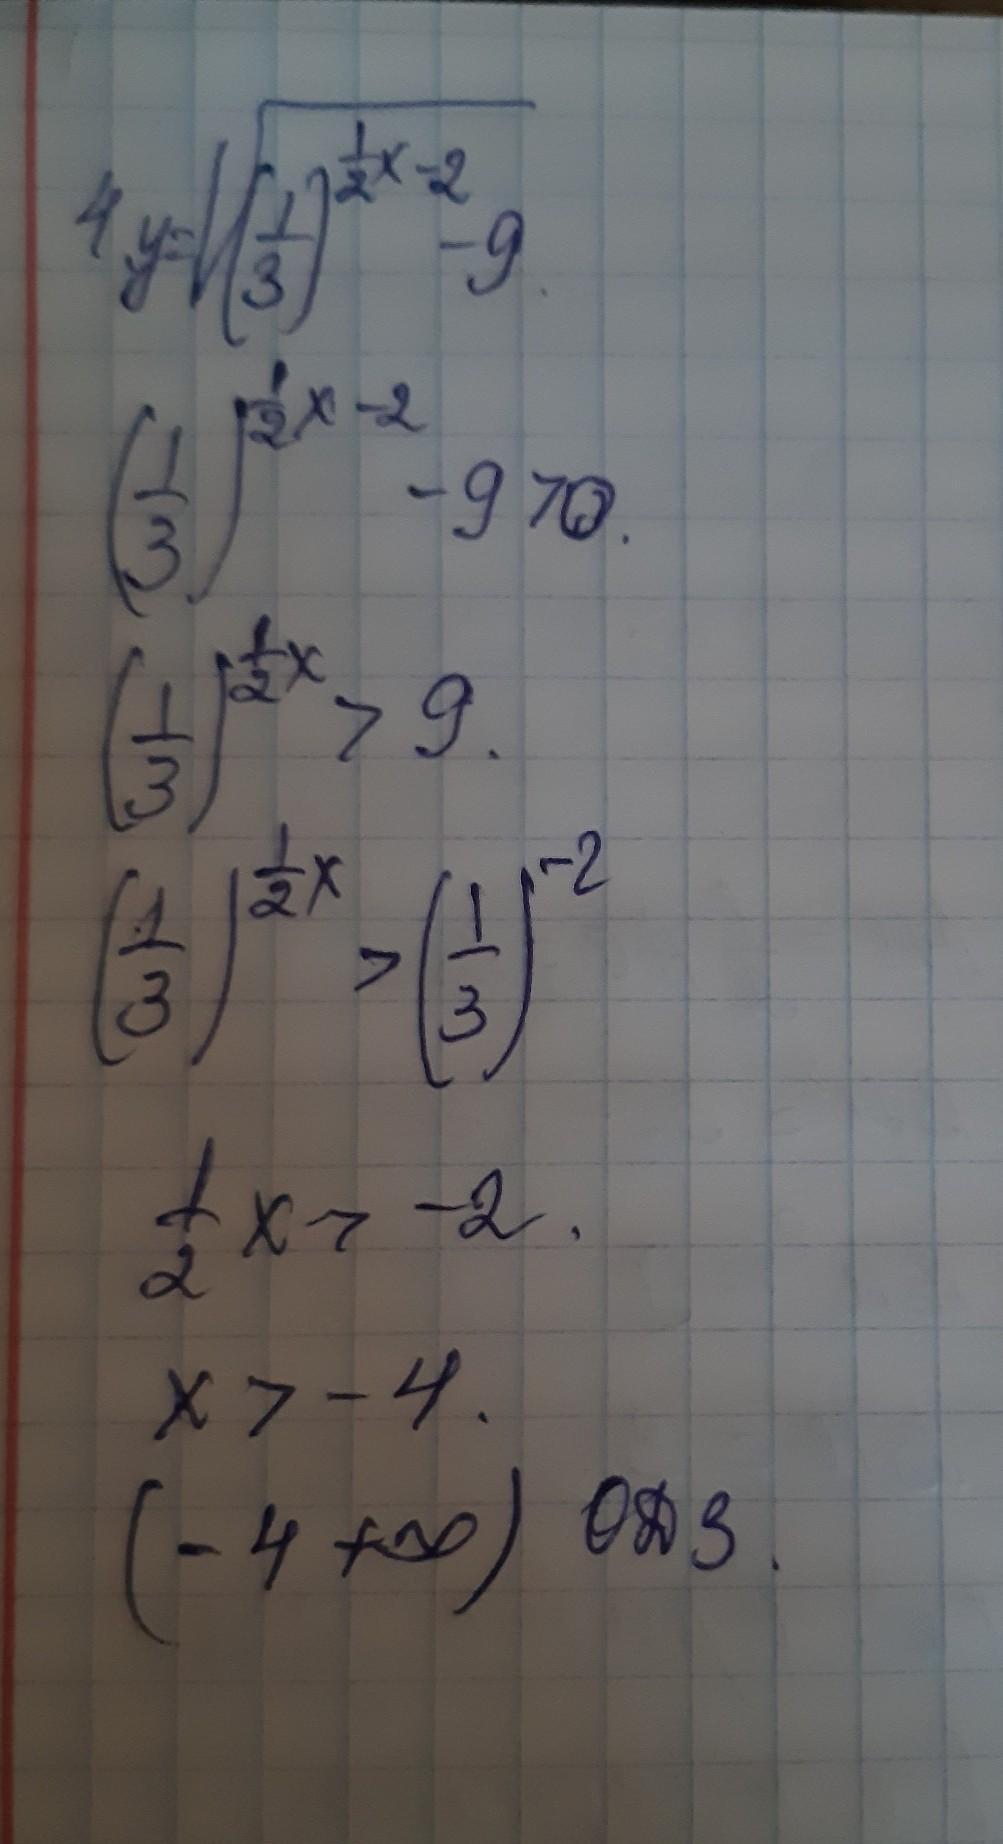 4 y = √((1/3)^(1/2 x - 2) - 9).
(1/3)^(1/2 x - 2) - 9 > 0.
(1/3)^(1/2 x) > 9.
(1/3)^(1/2 x) > (1/3)^(-2)
1/2 x > -2.
x > -4.
(-4 +∞) ОДЗ.